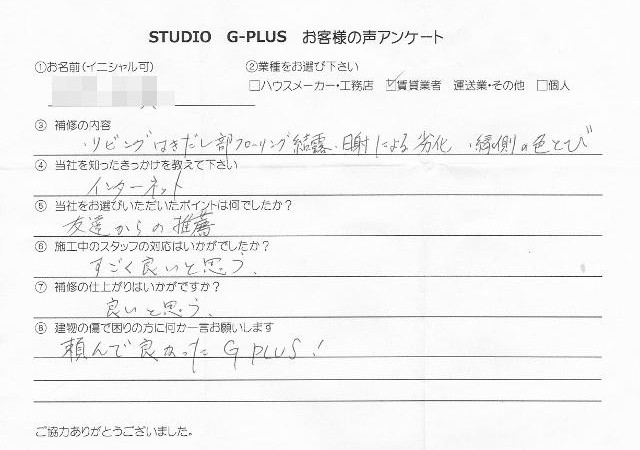 STUDIO G-PLUS お客様の声アンケート
①お名前(イニシャル可) ②業種をお選び下さい
□ハウスメーカー・工務店 ☑賃貸業者 運送業・その他 □個人
③ 補修の内容
・リビングはきだし部フローリング結露・日射による劣化 ・縁側の色とび
④ 当社を知ったきっかけを教えて下さい
インターネット
⑤ 当社をお選びいただいたポイントは何でしたか?
友達からの推薦
⑥ 施工中のスタッフの対応はいかがでしたか?
すごく良いと思う。
⑦ 補修の仕上がりはいかがですか?
良いと思う。
⑧ 建物の傷で困りの方に何か一言お願いします
頼んで良かった G PLUS!
ご協力ありがとうございました。